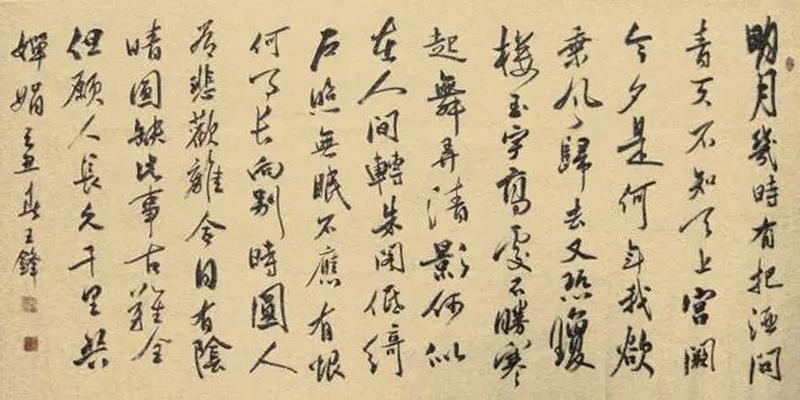 明月幾時有把酒問
青天不知天上宮闕
今夕是何年我欲
乘風歸去又恐瓊
樓玉宇高處不勝寒
起舞弄清影何似
在人間轉朱閣低綺
戶照無眠不應有恨
何事长向别時圓人
有悲歡離合月有陰
晴圓缺此事古難全
但願人長久千里共
嬋娟 春王鋒